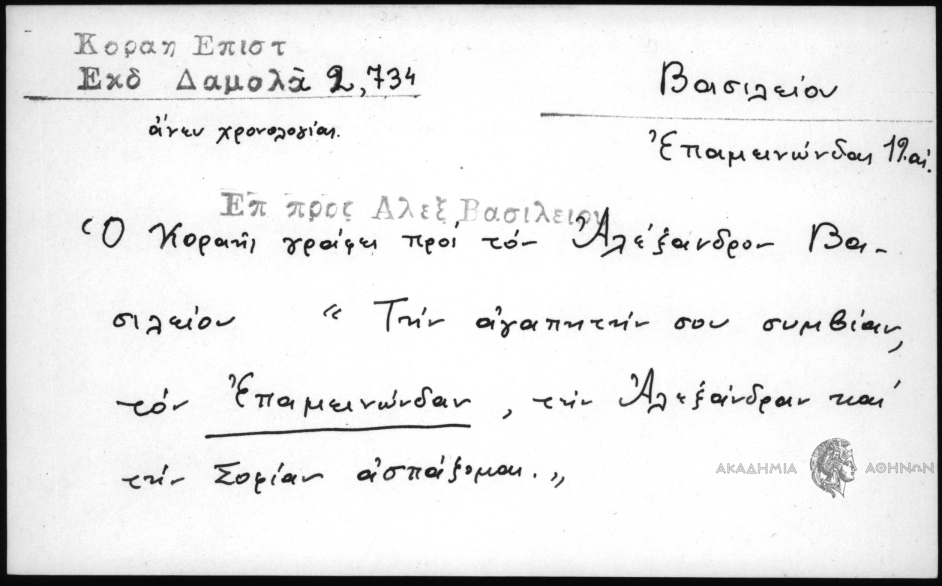 Κοραη Επιστ
Εκδ Δαμολᾶ 2,734
ἄνευ χρονολογίας.
Βασιλείου
Ἐπαμεινώνδας 19.αἰ.
Επ προς Αλεξ Βασιλειου
Ὁ Κοραῆς γράφει πρός τόν Ἀλέξανδρον Βα-
σιλείου “ Τήν ἀγαπητήν σου συμβίαν,
τόν Ἐπαμεινώνδαν , τήν Ἀλεξάνδραν καί
τήν Σοφίαν ἀσπάζομαι.„
ΑΚΑΔΗΜΙΑ ΑΘΗΝΩΝ